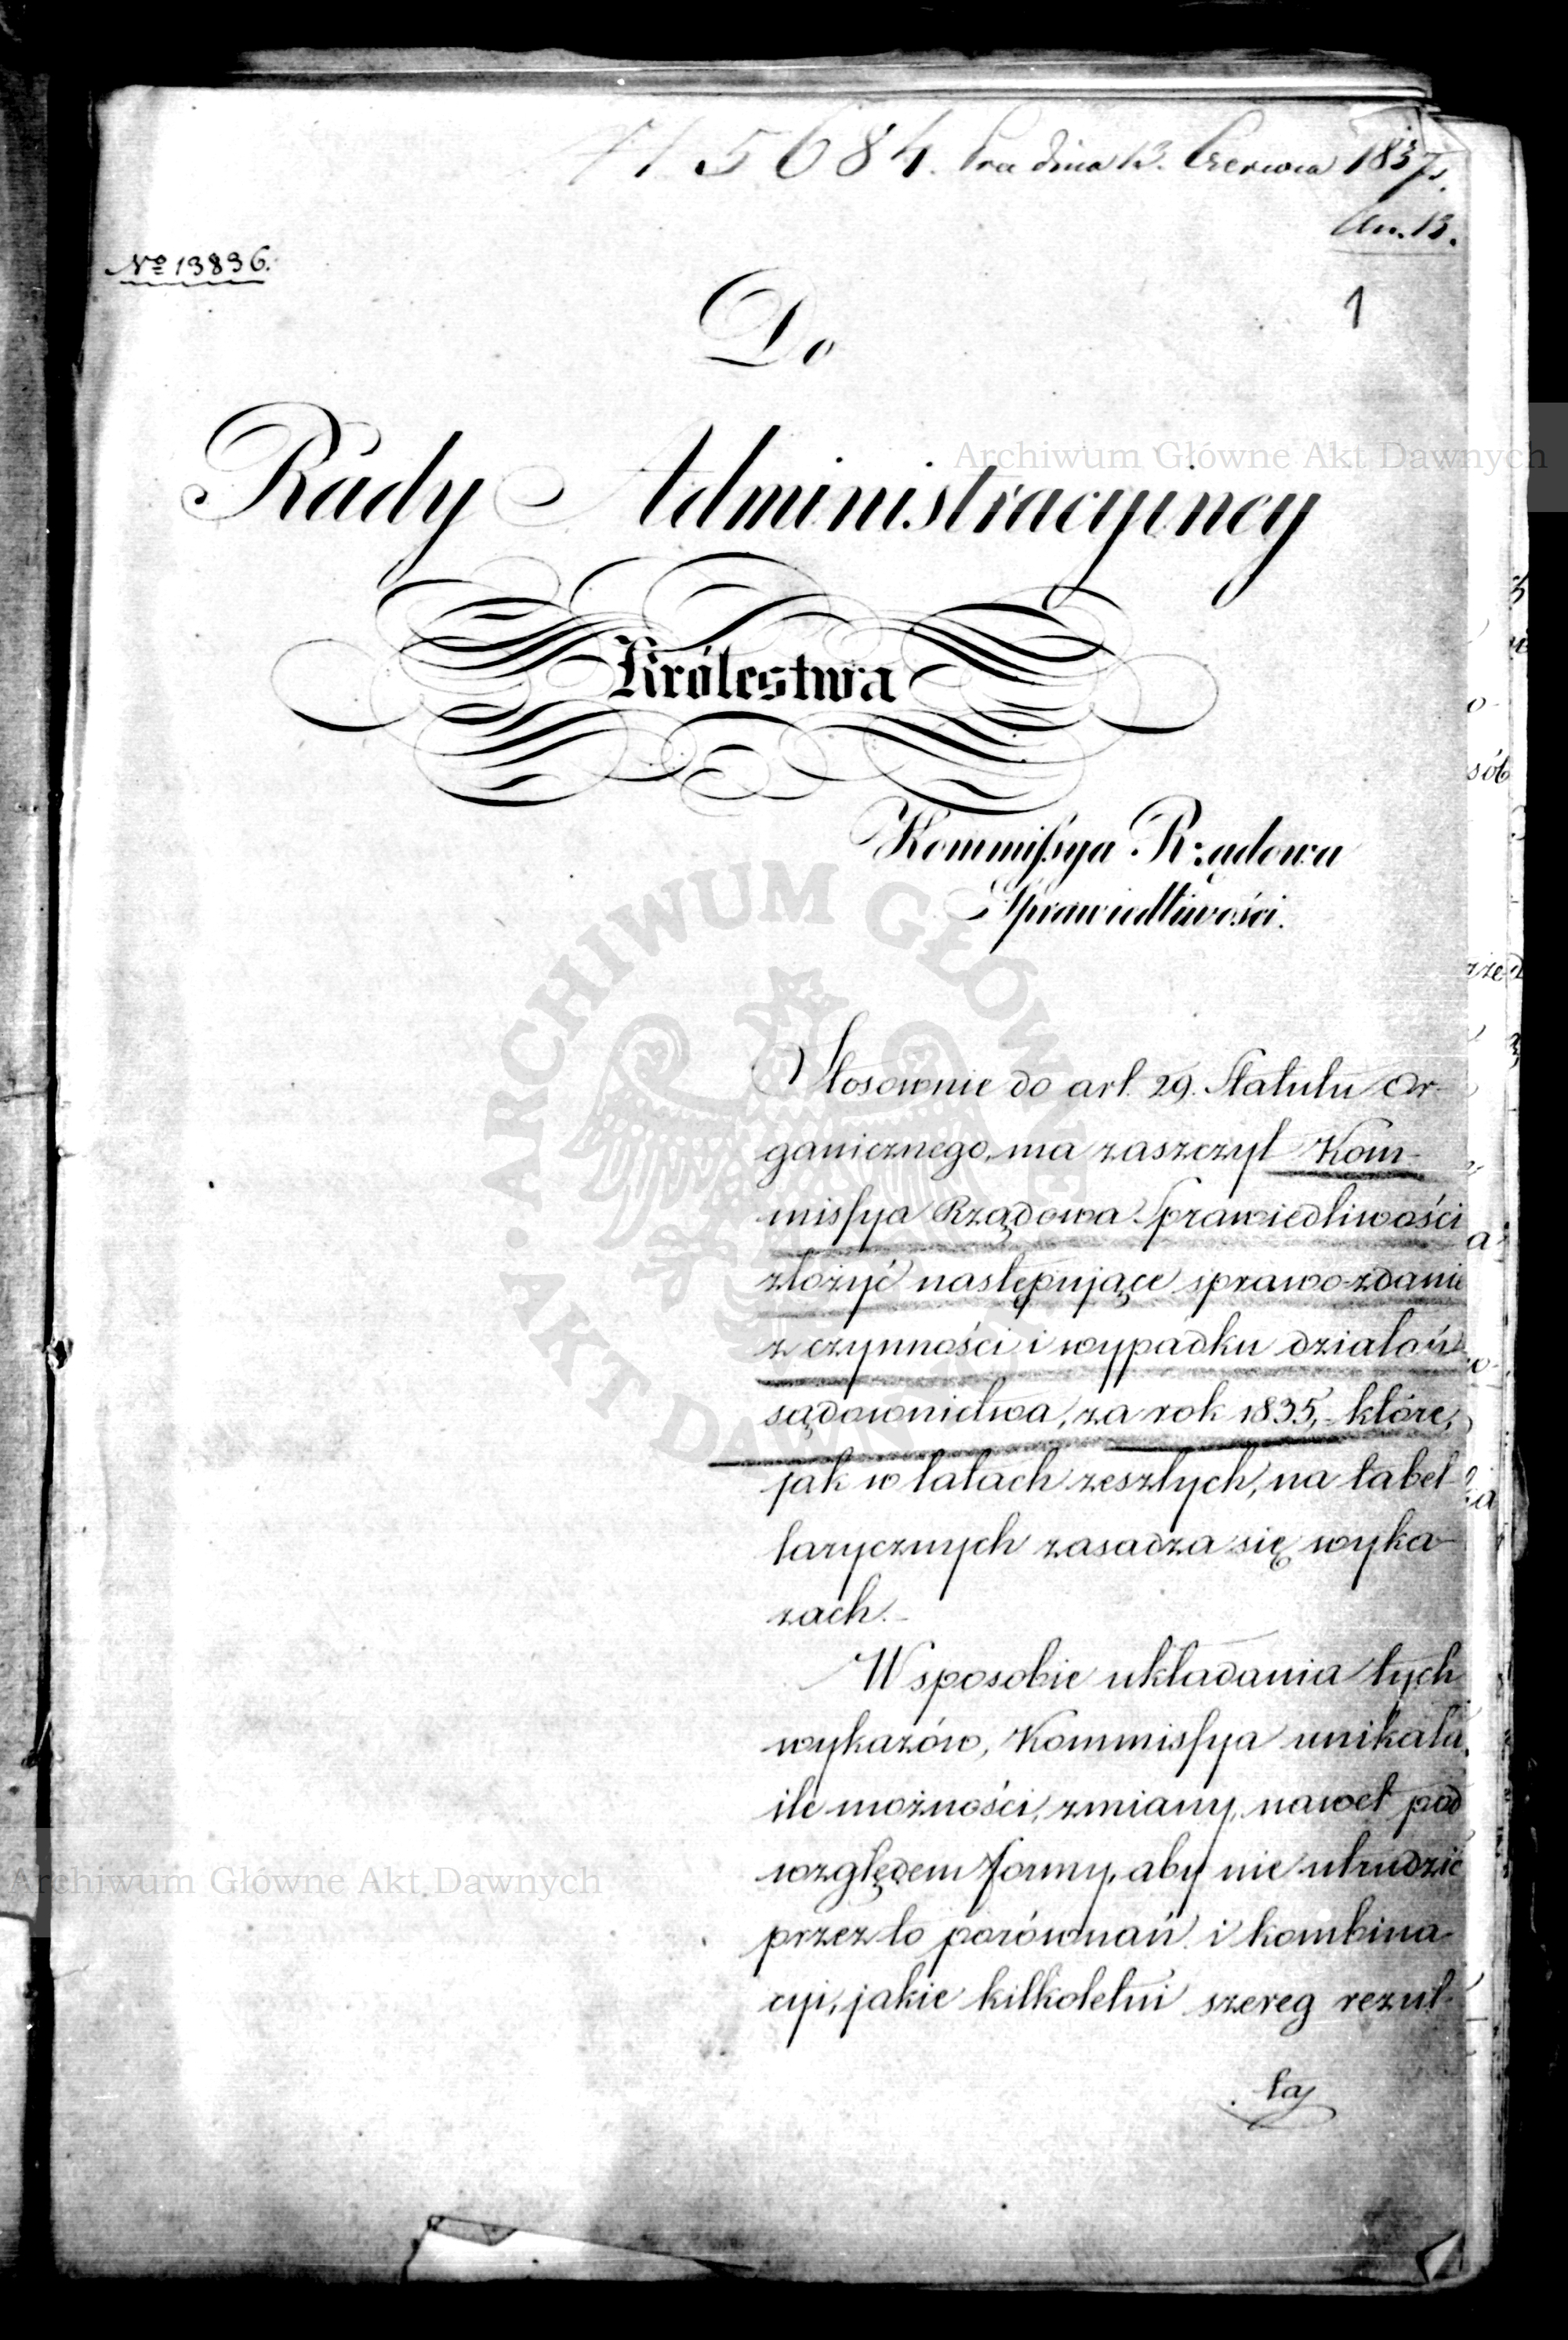 5684. Pra dnia 13. Czerwca 1837 r.
An. 13.
No 13836.
1
Do
Rady Administracyjney
Królestwa
Kommissya Rządowa
Sprawiedliwości.
Stosownie do art. 29. Statutu Or-
ganicznego, ma zaszczyt Kom-
missya Rządowa Sprawiedliwości
złożyć następujące sprawozdanie
z czynności i wypadku działań
sądownictwa, za rok 1835, które,
jak w latach zeszłych, na tabel-
larycznych zasadza się wyka-
zach.
W sposobie układania tych
wykazów, Kommissya unikała,
ile możności, zmiany, nawet pod
względem formy, aby nie utrudzić
przez to porównań i kombina-
cyi, jakie kilkoletni szereg rezul-
ta
Archiwum Główne Akt Dawnych
Archiwum Główne Akt Dawnych
ARCHIWUM GŁÓWNE AKT DAWNYCH